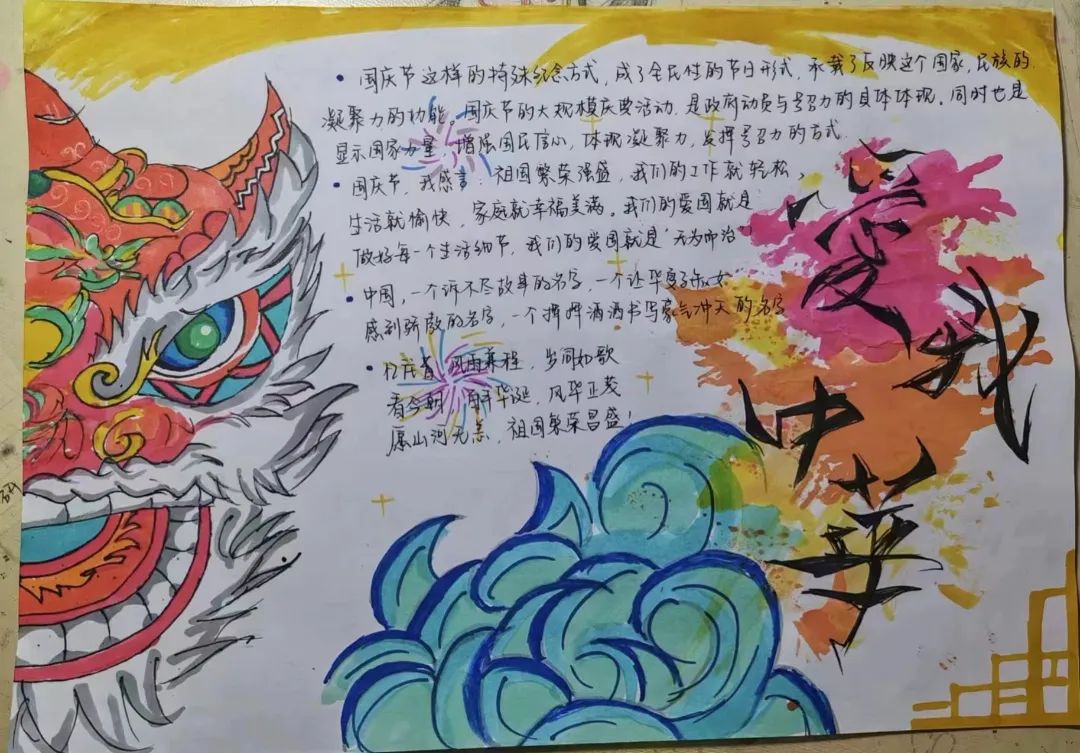 • 国庆节这样的特殊纪念方式，成了全民性的节日形式，承载了反映这个国家，民族的
凝聚力的功能。国庆节的大规模庆典活动，是政府动员与号召力的具体体现。同时也是
显示国家力量，增强国民信心，体现凝聚力，发挥号召力的方式.
• 国庆节，我感言：祖国繁荣强盛，我们的工作就轻松，
生活就愉快，家庭就幸福美满。我们的爱国就是
做好每一个生活细节，我们的爱国就是"无为而治"
• 中国，一个诉不尽故事的名字，一个让华夏子女
感到骄傲的名字，一个挥挥洒洒书写豪气冲天的名字
• 忆往昔，风雨兼程，岁同如歌
看今朝，周年华诞，风华正茂
愿山河无恙，祖国繁荣昌盛！
爱
我
中
华